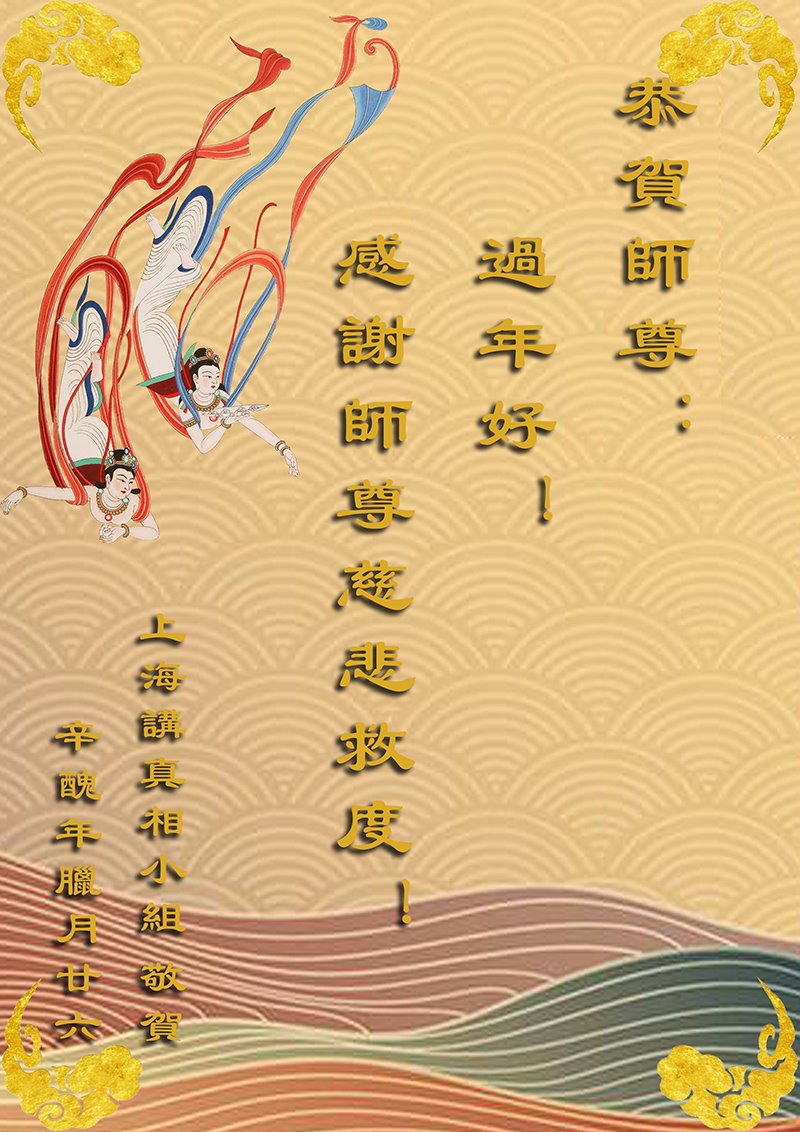 恭賀師尊：
過年好！
感謝師尊慈悲救度！
上海講真相小組 敬賀
辛醜年臘月廿六